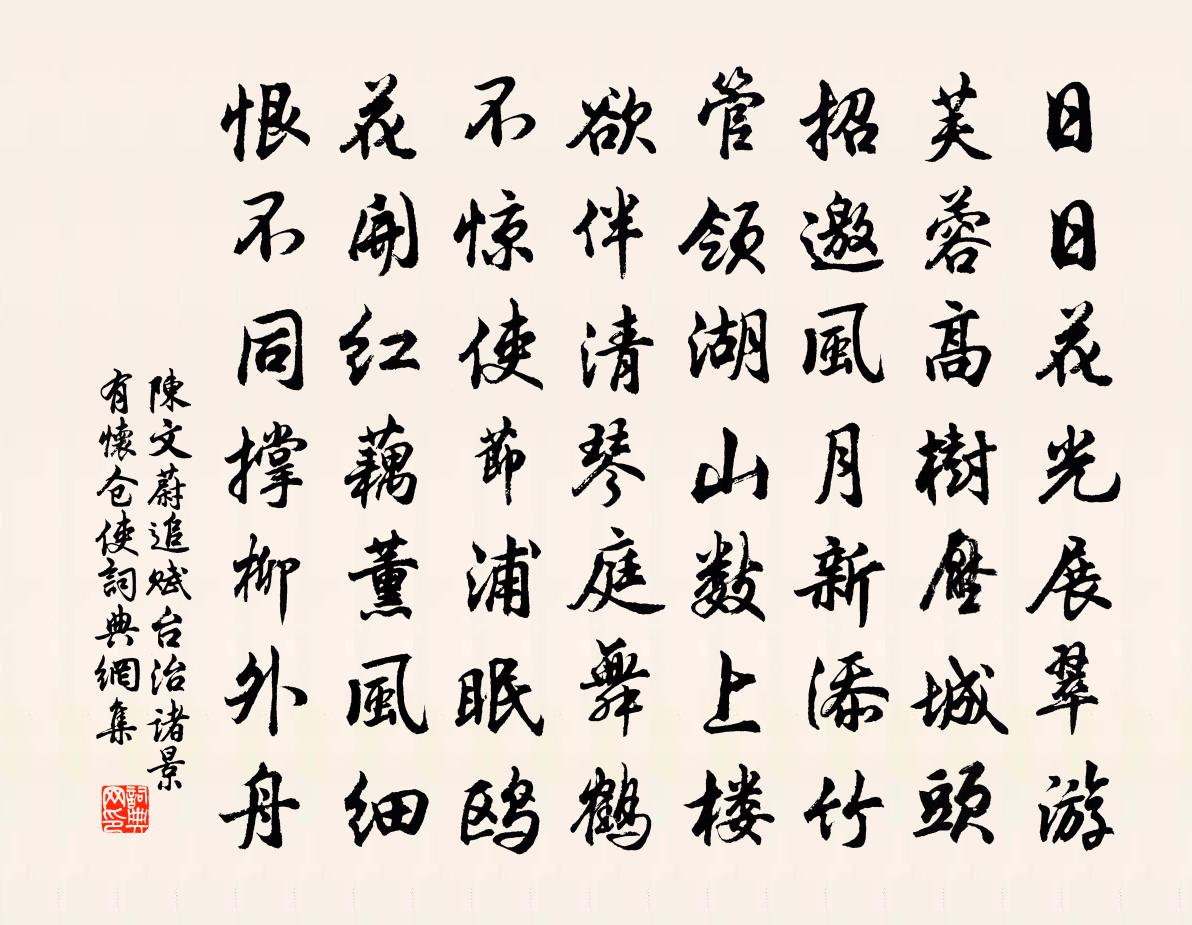 日日花光展翠游
芙蓉高樹壓城頭
招邀風月新添竹
管領湖山数上楼
欲伴清琴庭舞鶴
不惊使節浦眠鸥
花開红藕薰風细
恨不同撑柳外舟
陳文蔚追赋台治诸景
有懷仓使詞典網集
詞典网印